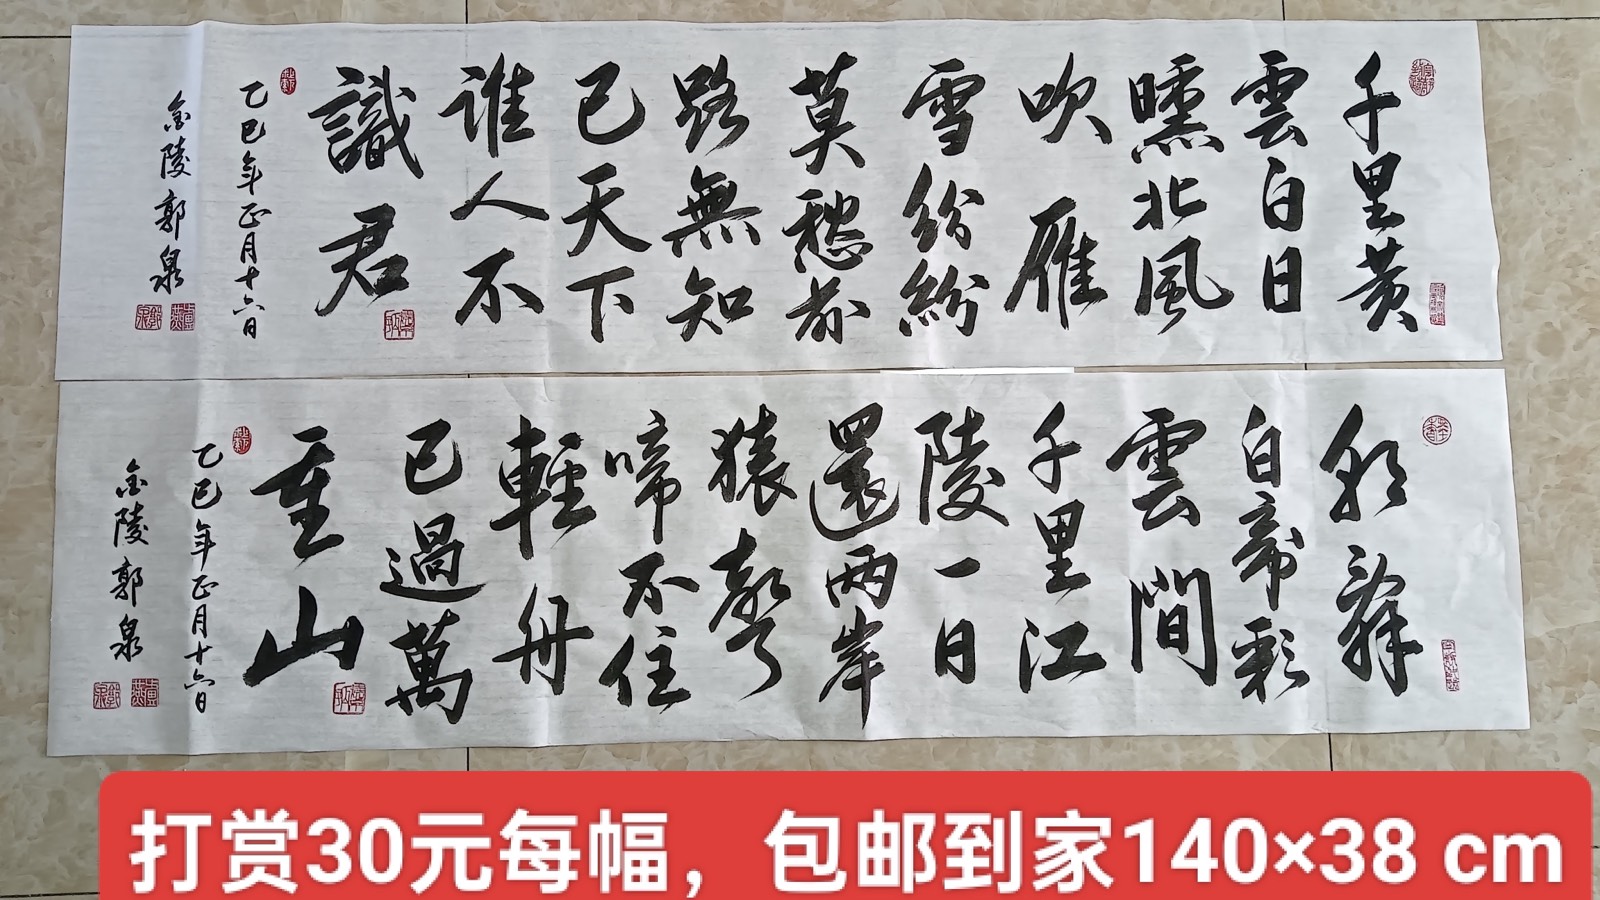 千里黄
雲白日
曛北風
吹雁
雪紛紛
莫愁前
路無知
己天下
誰人不
識君
乙巳年正月十六日
金陵郭泉
朝辭
白帝彩
雲間
千里江
陵一日
還两岸
猿聲
啼不住
輕舟
已過萬
重山
乙巳年正月十六日
金陵郭泉
打赏30元每幅，包邮到家140×38 cm